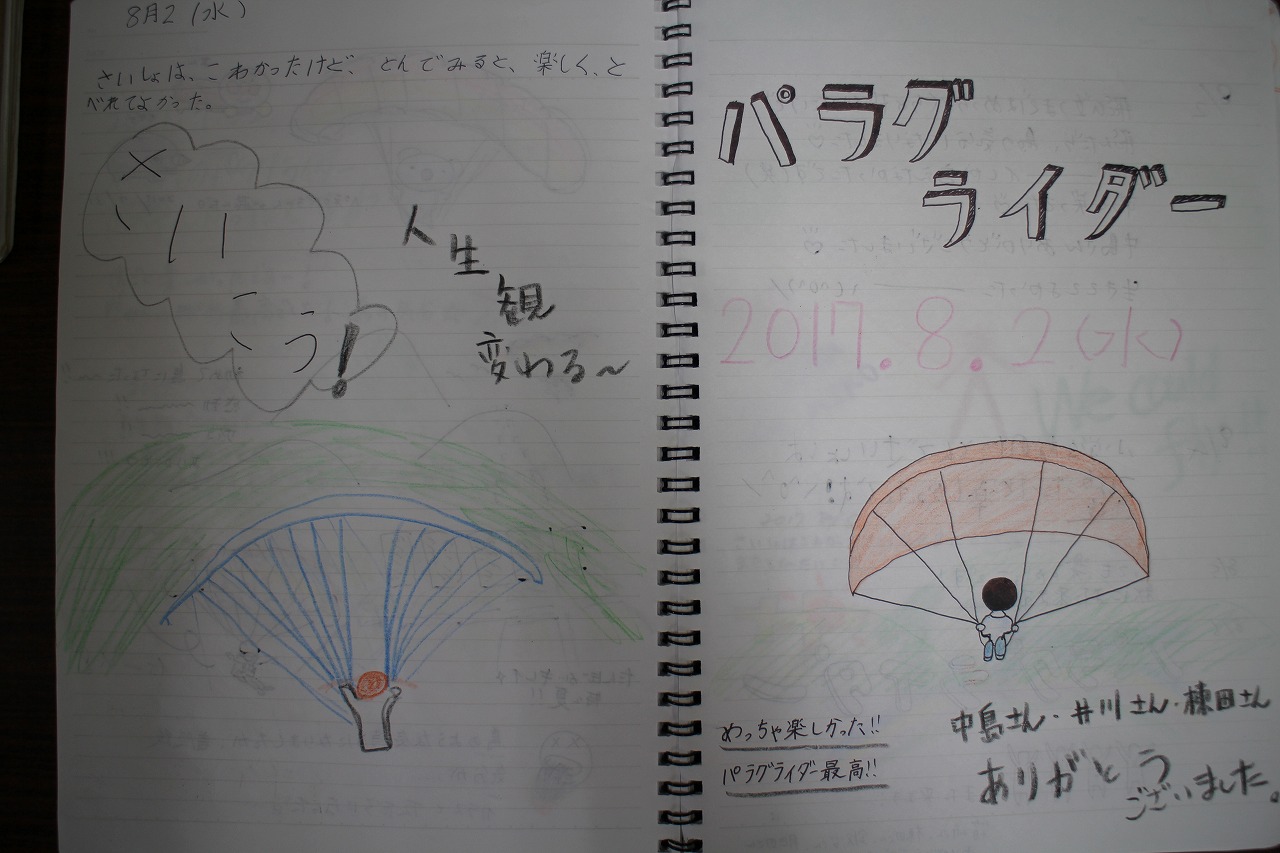 8月2(水)
さいしょは、こわかったけど、とんでみると、楽しく、と
べれてよかった。
メ
ソ
い
こう!
人生観
変わる〜
パラグ
ライダー
2017.8.2(水)
めっちゃ楽しかった!!
パラグライダー最高!!
中島さん・井川さん・棟田さん
ありがとう
ございました。